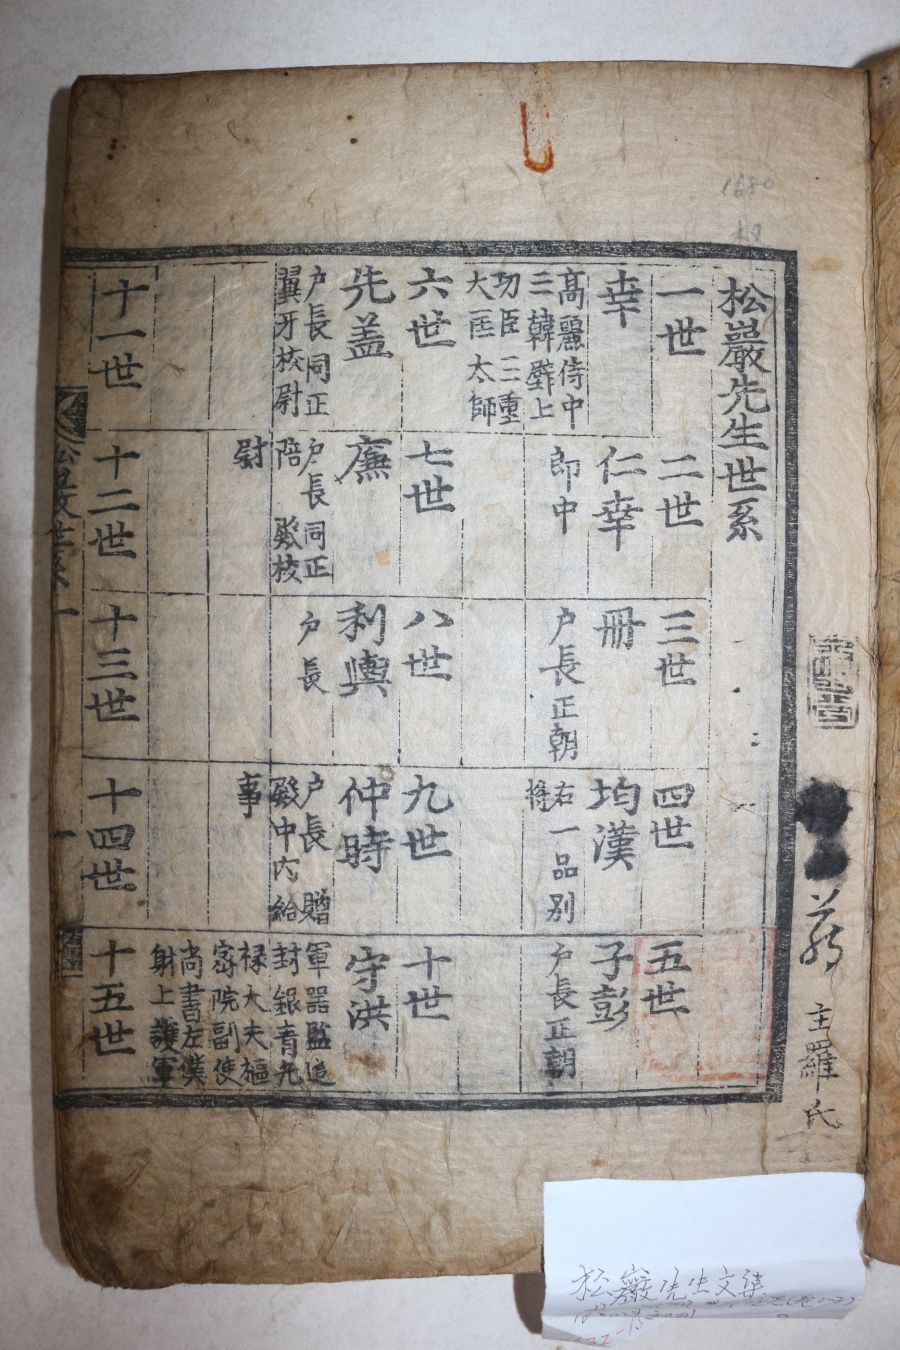 松巖先生世系
一世
幸
高麗侍中
三韓壁上
功臣三重
大匡太師
二世
仁幸
郎中
三世
冊
户長正朝
四世
均漢
右一品別
將
五世
子彭
户長正朝
六世
先蓋
户長同正
翼牙校尉
七世
廉
户長同正
陪 校
尉
八世
利輿
户長
九世
仲時
户長 贈
殿中内給
事
十世
守洪
軍器監追
封銀青光
祿大夫樞
密院副使
尚書左僕
射上護軍
十一世
十二世
十三世
十四世
十五世
1680
主羅氏
松巖先生文集